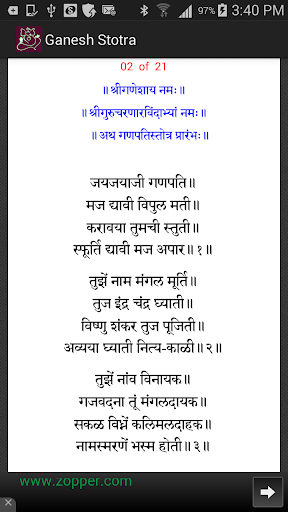 97% 3:40 PM
Ganesh Stotra
02 of 21
॥श्रीगणेशाय नमः॥
॥श्रीगुरुचरणारविंदाभ्यां नमः॥
॥अथ गणपतिस्तोत्र प्रारंभः॥
जयजयाजी गणपति॥
मज द्यावी विपुल मती॥
करावया तुमची स्तुती॥
स्फूर्ति द्यावी मज अपार॥१॥
तुझें नाम मंगल मूर्ति॥
तुज इंद्र चंद्र घ्याती॥
विष्णु शंकर तुज पूजिती॥
अव्यया घ्याती नित्य-काळी॥२॥
तुझें नांव विनायक॥
गजवदना तूं मंगलदायक॥
सकळ विघ्नें कलिमलदाहक॥
नामस्मरणें भस्म होती॥३॥
www.zopper.com